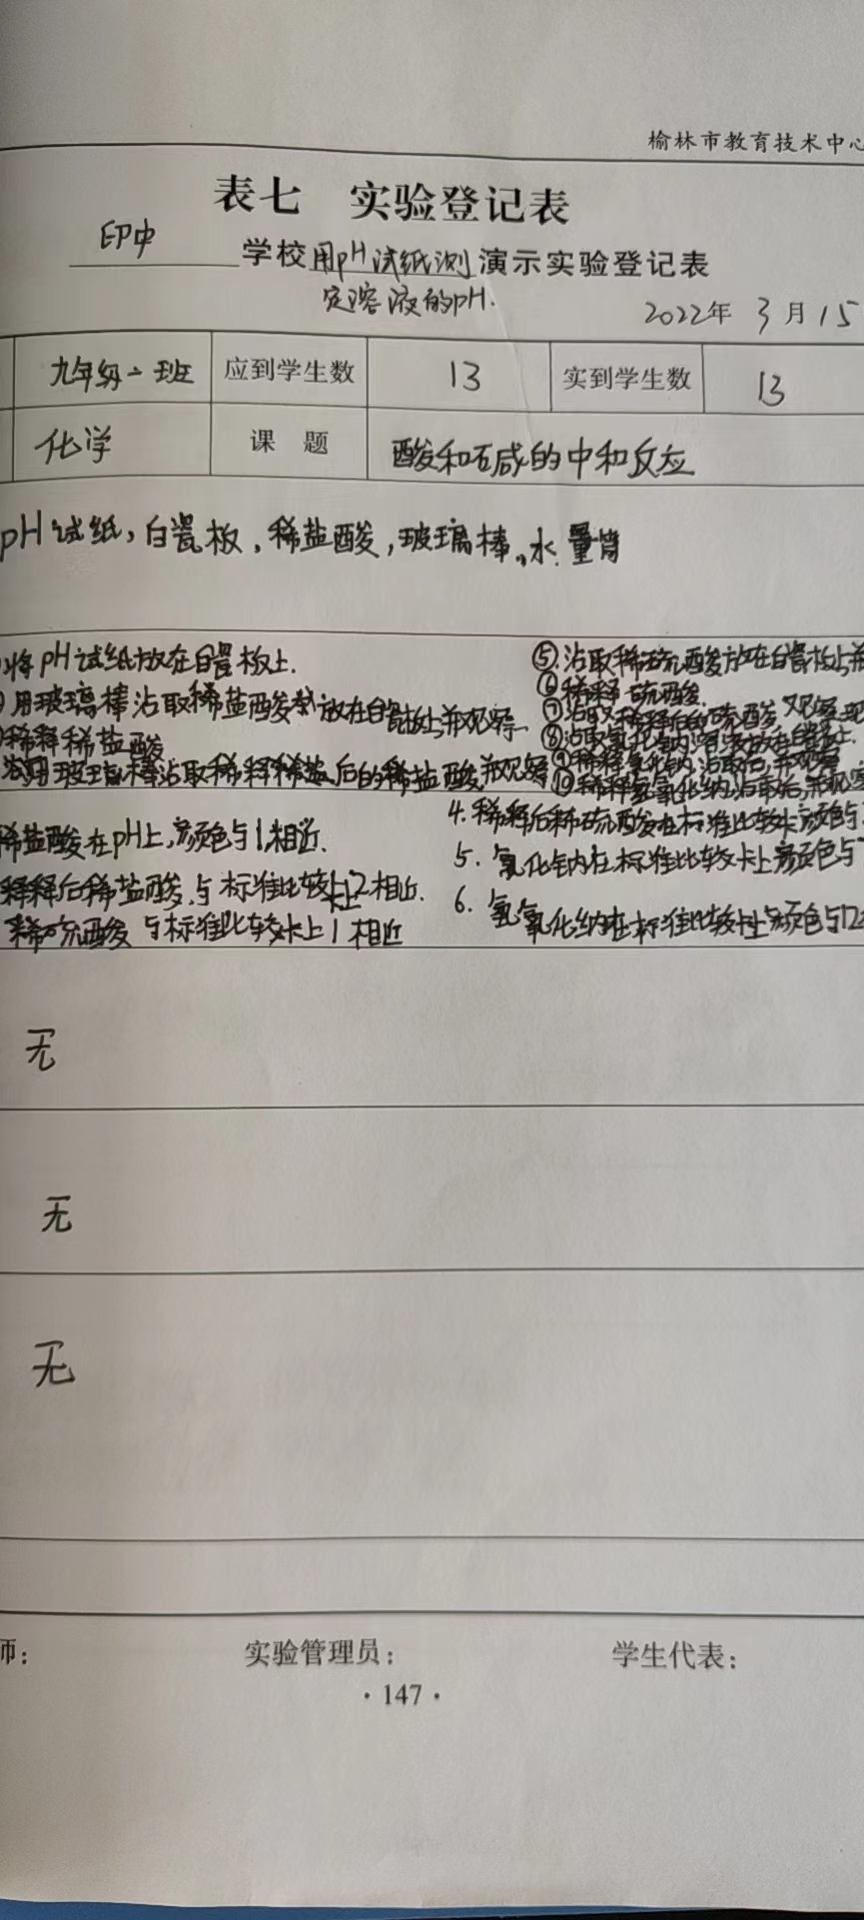 榆林市教育技术中心
表七 实验登记表
印中 学校用pH试纸测演示实验登记表
定溶液的pH.
2022年 3月15
九年级二班 应到学生数 13 实到学生数 13
化学 课 题 酸和碱的中和反应
pH试纸,白瓷板,稀盐酸,玻璃棒,水.量筒
将pH试纸放在白瓷板上.
用玻璃棒沾取稀盐酸放在白瓷板上并观察
稀释稀盐酸
用玻璃棒沾取稀释稀盐后的稀盐酸并观察
⑤.沾取稀硫酸放在白瓷板上并
⑥稀释硫酸
⑦沾取稀释后的硫酸 观察
⑧沾取氯化钠溶液放在白瓷板上.
⑨稀释氯化钠沾取后,并观察
⑩稀释氢氧化纳,沾取后,并观察
稀盐酸在pH上,颜色与1相近.
释释后稀盐酸,与标准比较卡上2相近.
稀硫酸与标准比较卡上1相近
4.稀释后稀硫酸在标准比较卡颜色与
5.氯化钠在标准比较卡上颜色与
6.氢氧化纳在标准比较卡上颜色与12
无
无
无
师: 实验管理员: 学生代表:
·147·